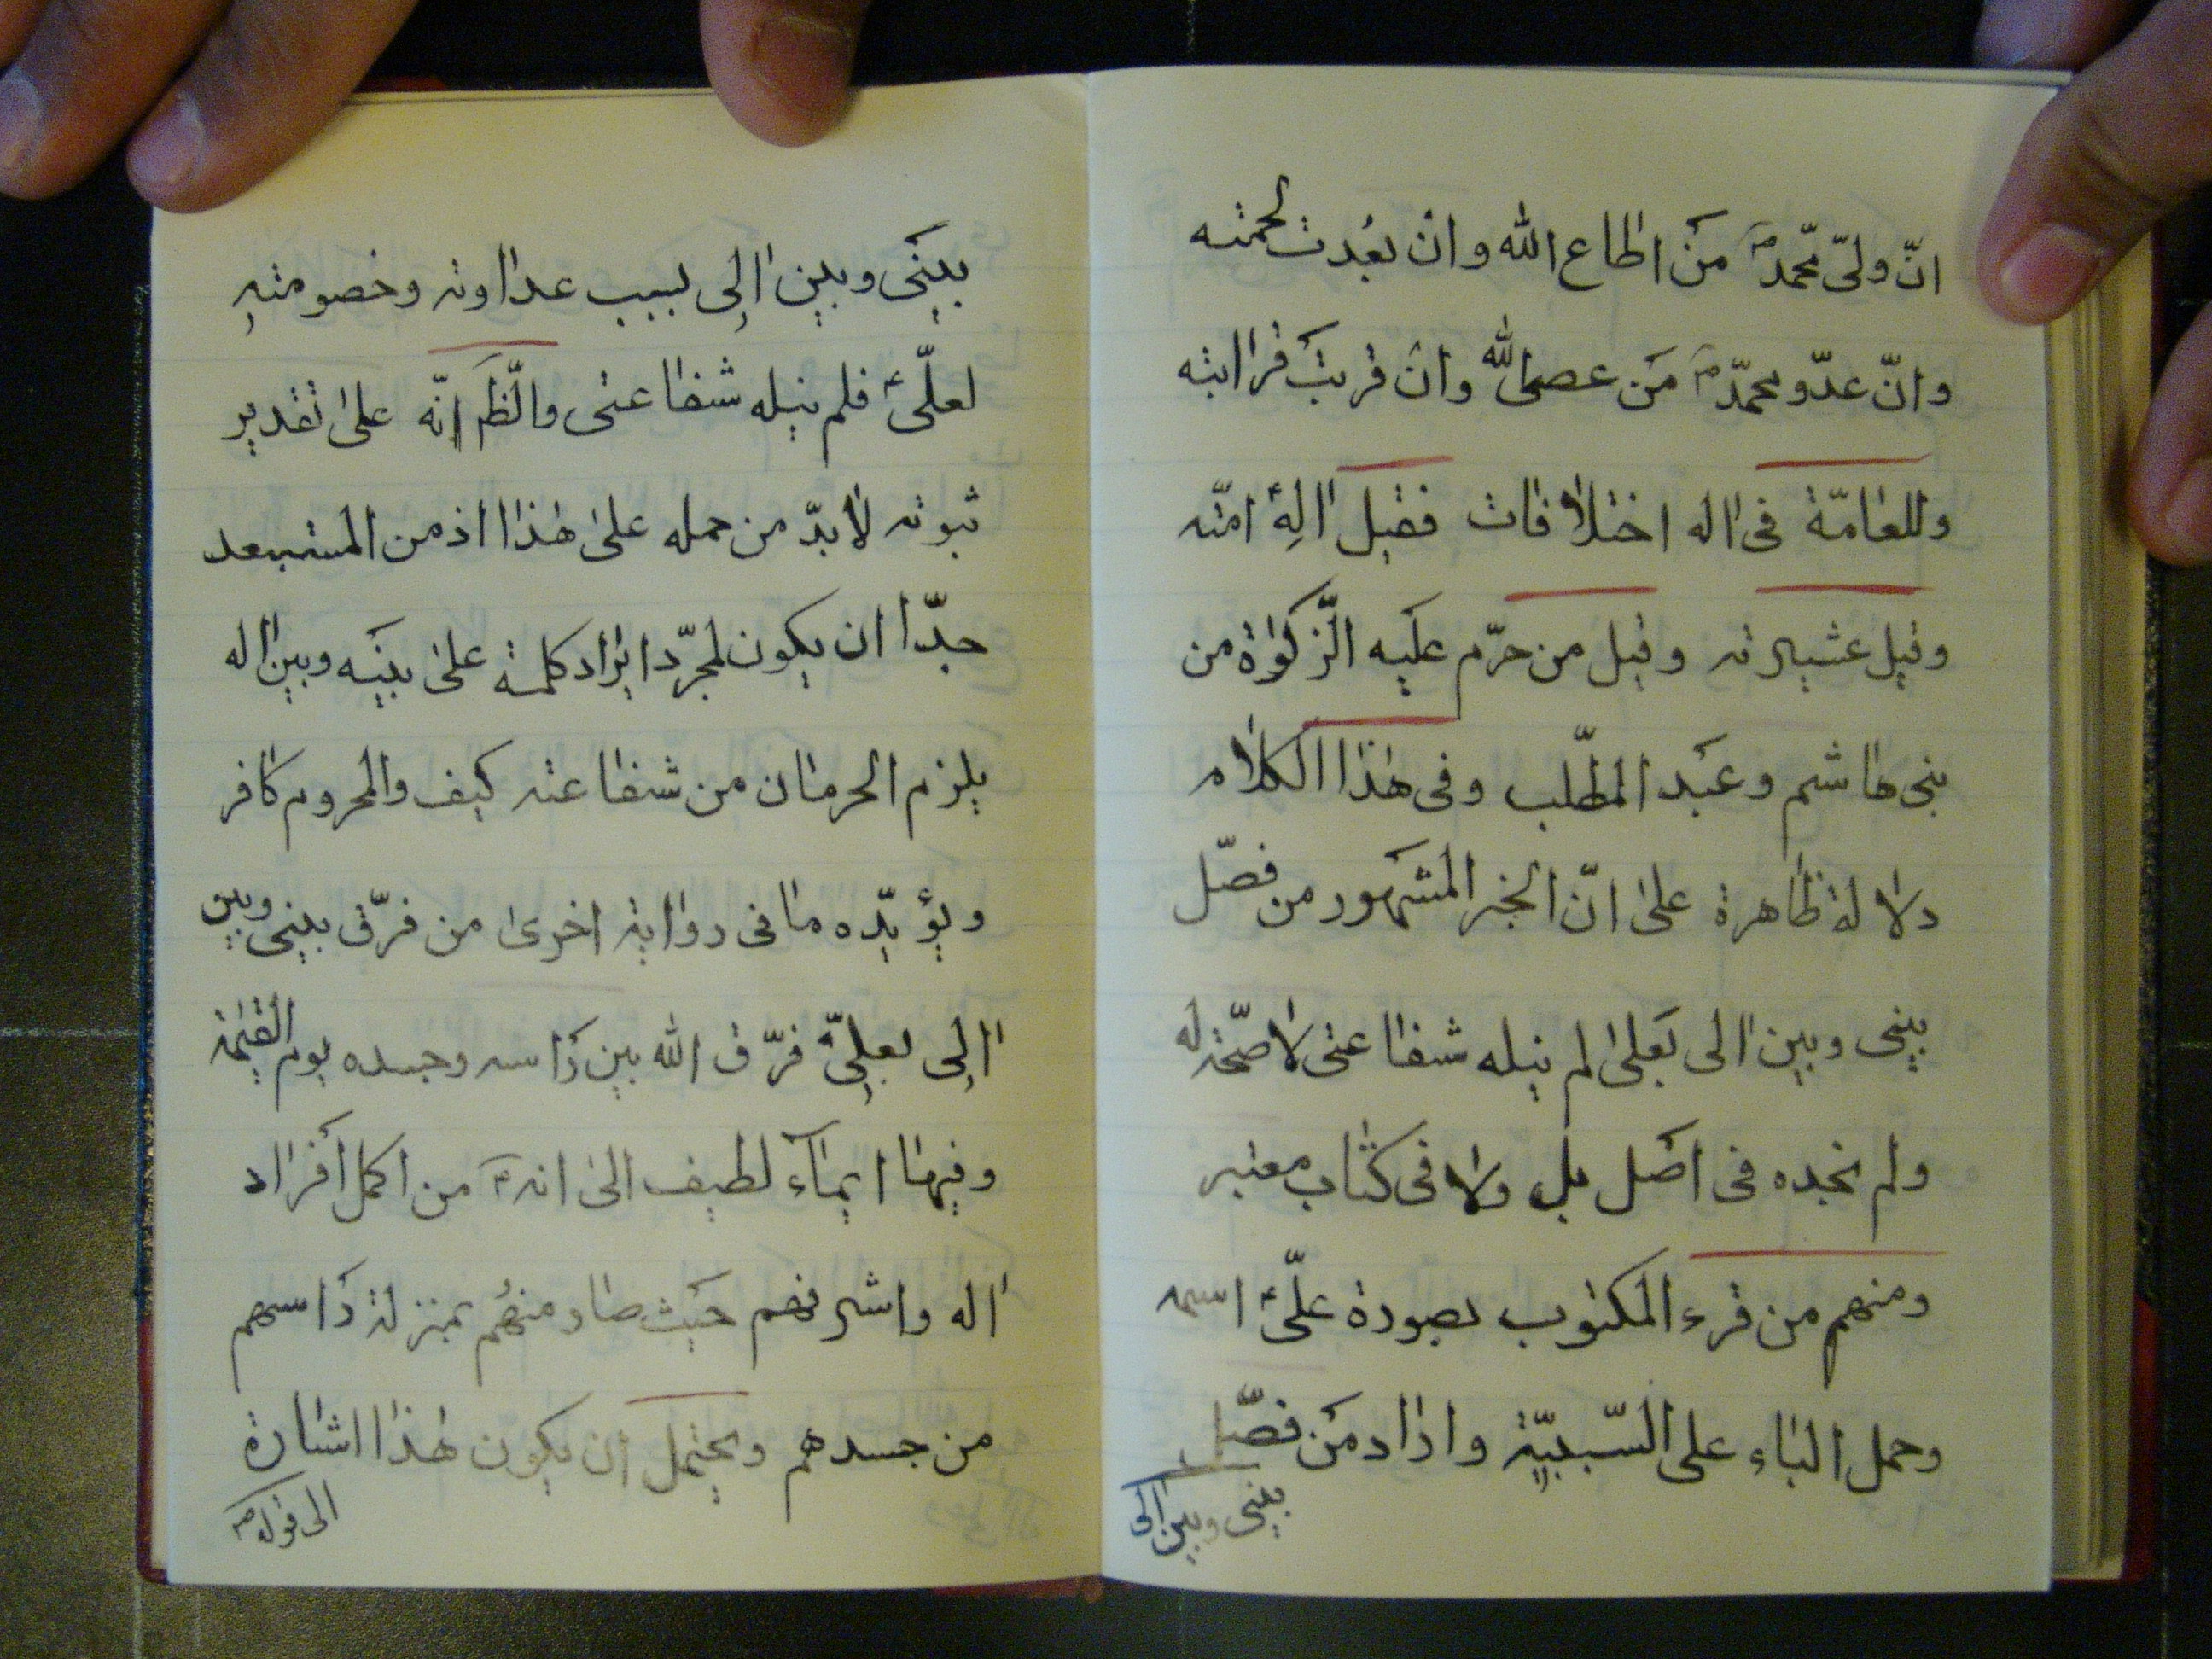 انّ ولیّ محمّدؐ مَن اطاع الله وان بعُدت لحمته
وانّ عدّو محمّدؐ مَن عصی الله وان قربَت قرابته
وللعامّة فی اله اختلافات فقیل الهِٔ امّته
وقیل عشیرته وقیل من حرّم علَیه الزّکوٰة من
بنی هاشم وعبَد المطّلب وفی هٰذا الکلام
دلالة ظاهرة علیٰ انّ الخبر المشهور من فصّل
بینی وبین الی بعَلیٰ لم ینله شفاعتی لا صحّة له
ولم نجده فی اصَل بل ولا فی کتاب معتبر
ومنهم من قرء المکتوب بصورة علّیؑ اسمه
وحمل الباء علی السّببیّة واراد مَن فصّل
بینی وبین الی
بینَی وبین الِی بسبب عداوته وخصومتهِ
لعلّیؑ فلم ینله شفاعتی والظّ انّه علیٰ تقدیر
ثبوته لابدّ من حمله علیٰ هٰذا اذ من المستبعد
جدّا ان یکون لمجرّد ایراد کلمة علیٰ بینَه وبین اله
یلزم الحرمان من شفاعته کیف والمحروم کافر
ویؤیّده ما فی روایة اخریٰ من فرّق بینی وبین
الِی بعلیّ فرّق الله بین رَاسه وجسده یوم القیٰمة
وفیها ایمآء لطیف الیٰ انهؑ من اکمل افَراد
اله واشرفهم حیَث صار منهُم بمنزلة رَاسهم
من جسدهم ویحتمل ان یکون هٰذا اشارة
الی قولهؐ